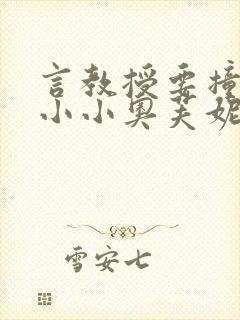 言教授要撞
小小奥芙妮
雪安七